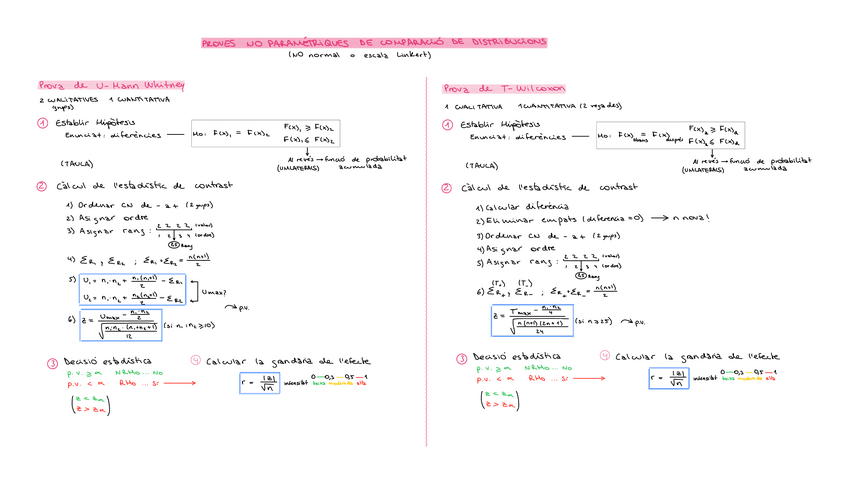 PROVES NO PARAMÈTRIQUES DE COMPARACIÓ DE DISTRIBUCIONS
(NO normal o escala Linkert)
Prova de U-Mann Whitney
2 CUALITATIVES 1 CUANTITATIVA
grups)
1 Establir Hipòtesis
Enunciat: diferències — Ho: F(x)₁ = F(x)₂ F(x)₁ ≥ F(x)₂
F(x)₁ ≤ F(x)₂
Al revés → funció de probabilitat
(UNILATERALS) acumulada
(TAULA)
2 Càlcul de l'estadístic de contrast
1) Ordenar CN de - a + (2 grups)
2) Asignar ordre
3) Asignar rang: 2 2 2 2 (valor)
1 2 3 4 (ordre)
2,5 Rang
4) ΣR₁, ΣR₂ ; ΣR₁+ΣR₂ = n(n+1)/2
5) U₁ = n₁·n₂ + n₁(n₁+1)/2 - ΣR₁
U₂ = n₁·n₂ + n₂(n₂+1)/2 - ΣR₂
Umax?
6) z = (Umax - n₁·n₂/2) / √(n₁n₂·(n₁+n₂+1)/12) (si n₁ i n₂ ≥10) → p.v.
3 Decisió estadística
p.v. ≥ α NRHo ... No
p.v. < α RHo ... Sí →
(z < zα
z > zα)
4 Calcular la grandària de l'efecte
r = |z|/√n intensitat 0—0,3—0,5—1
baixa moderada alta
Prova de T-Wilcoxon
1 CUALITATIVA 1 CUANTITATIVA (2 vegades)
1 Establir Hipòtesis
Enunciat: diferències — Ho: F(x)abans = F(x)després F(x)a ≥ F(x)d
F(x)a ≤ F(x)d
Al revés → funció de probabilitat
(UNILATERALS) acumulada
(TAULA)
2 Càlcul de l'estadístic de contrast
1) Calcular diferència
2) Eliminar empats (diferencia =0) → n nova!
3) Ordenar CN de - a + (2 grups)
4) Asignar ordre
5) Asignar rang: 2 2 2 2 (valor)
1 2 3 4 (ordre)
2,5 Rang
(T+) (T-)
6) ΣR+, ΣR- ; ΣR+ + ΣR- = n(n+1)/2
z = (Tmax - n₁·n₂/4) / √(n(n+1)(2n+1)/24) (si n ≥ 25) → p.v.
3 Decisió estadística
p.v. ≥ α NRHo ... No
p.v. < α RHo ... Sí →
(z < zα
z > zα)
4 Calcular la grandària de l'efecte
r = |z|/√n intensitat 0—0,3—0,5—1
baixa moderada alta